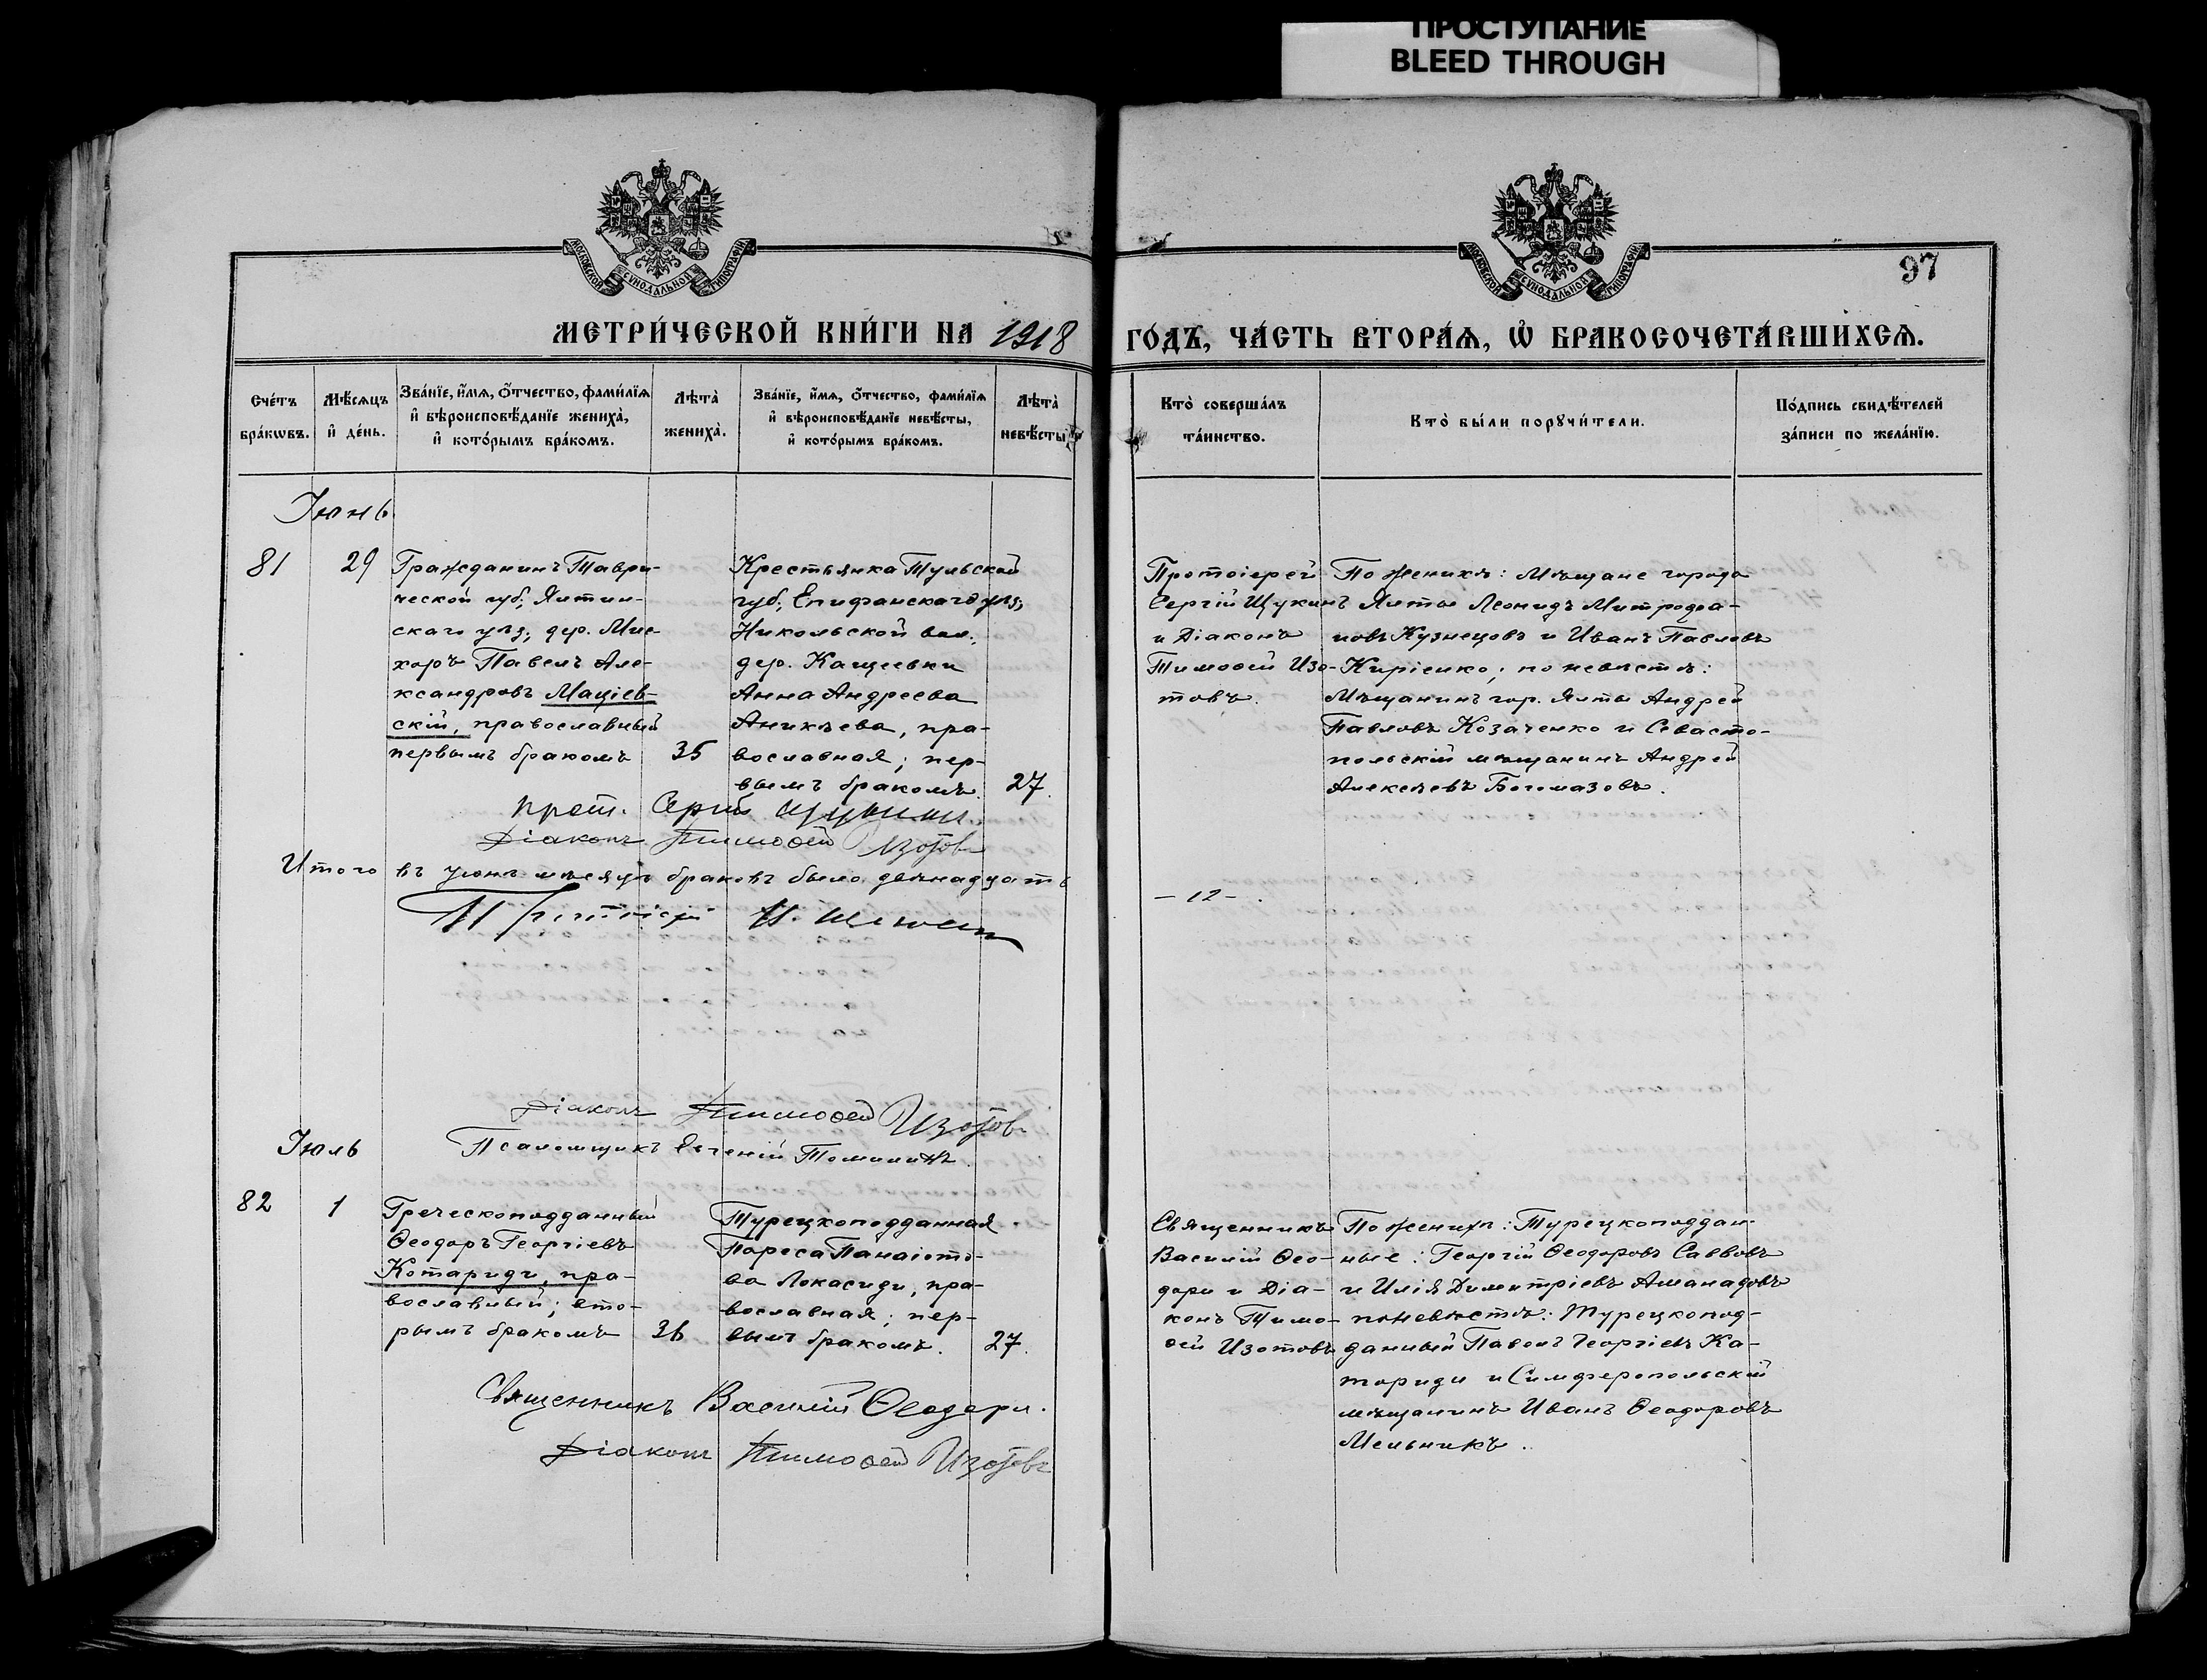 ПРОСТУПАНИЕ
BLEED THROUGH
МОСКОВСКОЙ СѴНОДАЛЬНОЙ ТИПОГРАФІИ
МОСКОВСКОЙ СѴНОДАЛЬНОЙ ТИПОГРАФІИ
97
МЕТРИ́ЧЕСКОЙ КНИ́ГИ НА 1918
ГО́ДЪ, ЧА́СТЬ ВТОРА́Ѧ, Ѽ БРАКОСОЧЕТА́ВШИХСѦ.
Сче́тъ
бра́кѡвъ.
Мѣ́сѧцъ
и҆ де́нь.
Зва́нїе, и҆́мѧ, о҆́тчество, фами́лїѧ
и҆ вѣроисповѣ́данїе жениха̀,
и҆ кото́рымъ бра́комъ.
Лѣта̀
жениха̀.
Зва́нїе, и҆́мѧ, о҆́тчество, фами́лїѧ
и҆ вѣроисповѣ́данїе невѣ́сты,
и҆ кото́рымъ бра́комъ.
Лѣта̀
невѣ́сты
Кто̀ соверша́лъ
та́инство.
Кто̀ бы́ли порꙋчи́тели.
По́дпись свидѣ́телей
за́писи по жела́нїю.
Іюнь.
81
29
Гражданинъ Таври-
ческой губ., Ялтин-
скаго уѣз., дер. Мис-
хоръ Павелъ Але-
ксандровъ Маціев-
скій, православный
первымъ бракомъ
35
Крестьянка Тульской
губ., Епифанскаго уѣз.,
Никольской вол.
дер. Кащеевки
Анна Андреева
Аникѣева, пра-
вославная; пер-
вымъ бракомъ.
27.
Протоіерей
Сергій Щукинъ
и Діаконъ
Тимоѳей Изо-
товъ.
По женихѣ: Мѣщане города
Ялты Леонидъ Митрофа-
новъ Кузнецовъ и Иванъ Павловъ
Киріенко; по невѣстѣ:
Мѣщанинъ гор. Ялты Андрей
Павловъ Козаченко и Севасто-
польскій мѣщанинъ Андрей
Алексѣевъ Богомазовъ.
Прот. Сергій Щукинъ.
Діаконъ Тимоѳей Изотовъ
Итого въ іюнѣ мѣсяцѣ браковъ было двѣнадцать
— 12 — .
Діаконъ Тимоѳей Изотовъ
Псаломщикъ Евгеній Томилинъ.
Іюль
82
1
Греческоподданный
Ѳеодоръ Георгіевъ
Котариди, пра-
вославный; вто-
рымъ бракомъ
36
Турецкоподданная
Пареса Панаіото-
ва Локасиди, пра-
вославная; пер-
вымъ бракомъ.
27.
Священникъ
Василій Ѳео-
дори и Діа-
конъ Тимо-
ѳей Изотовъ
По женихѣ: Турецкоподдан-
ные: Георгій Ѳеодоровъ Саввовъ
и Илія Димитріевъ Аманадовъ
по невѣстѣ: Турецкопод-
данный Павелъ Георгіевъ Ка-
ториди и Симферопольскій
мѣщанинъ Иванъ Ѳеодоровъ
Мельникъ.
Священникъ Василій Ѳеодори.
Діаконъ Тимоѳей Изотовъ